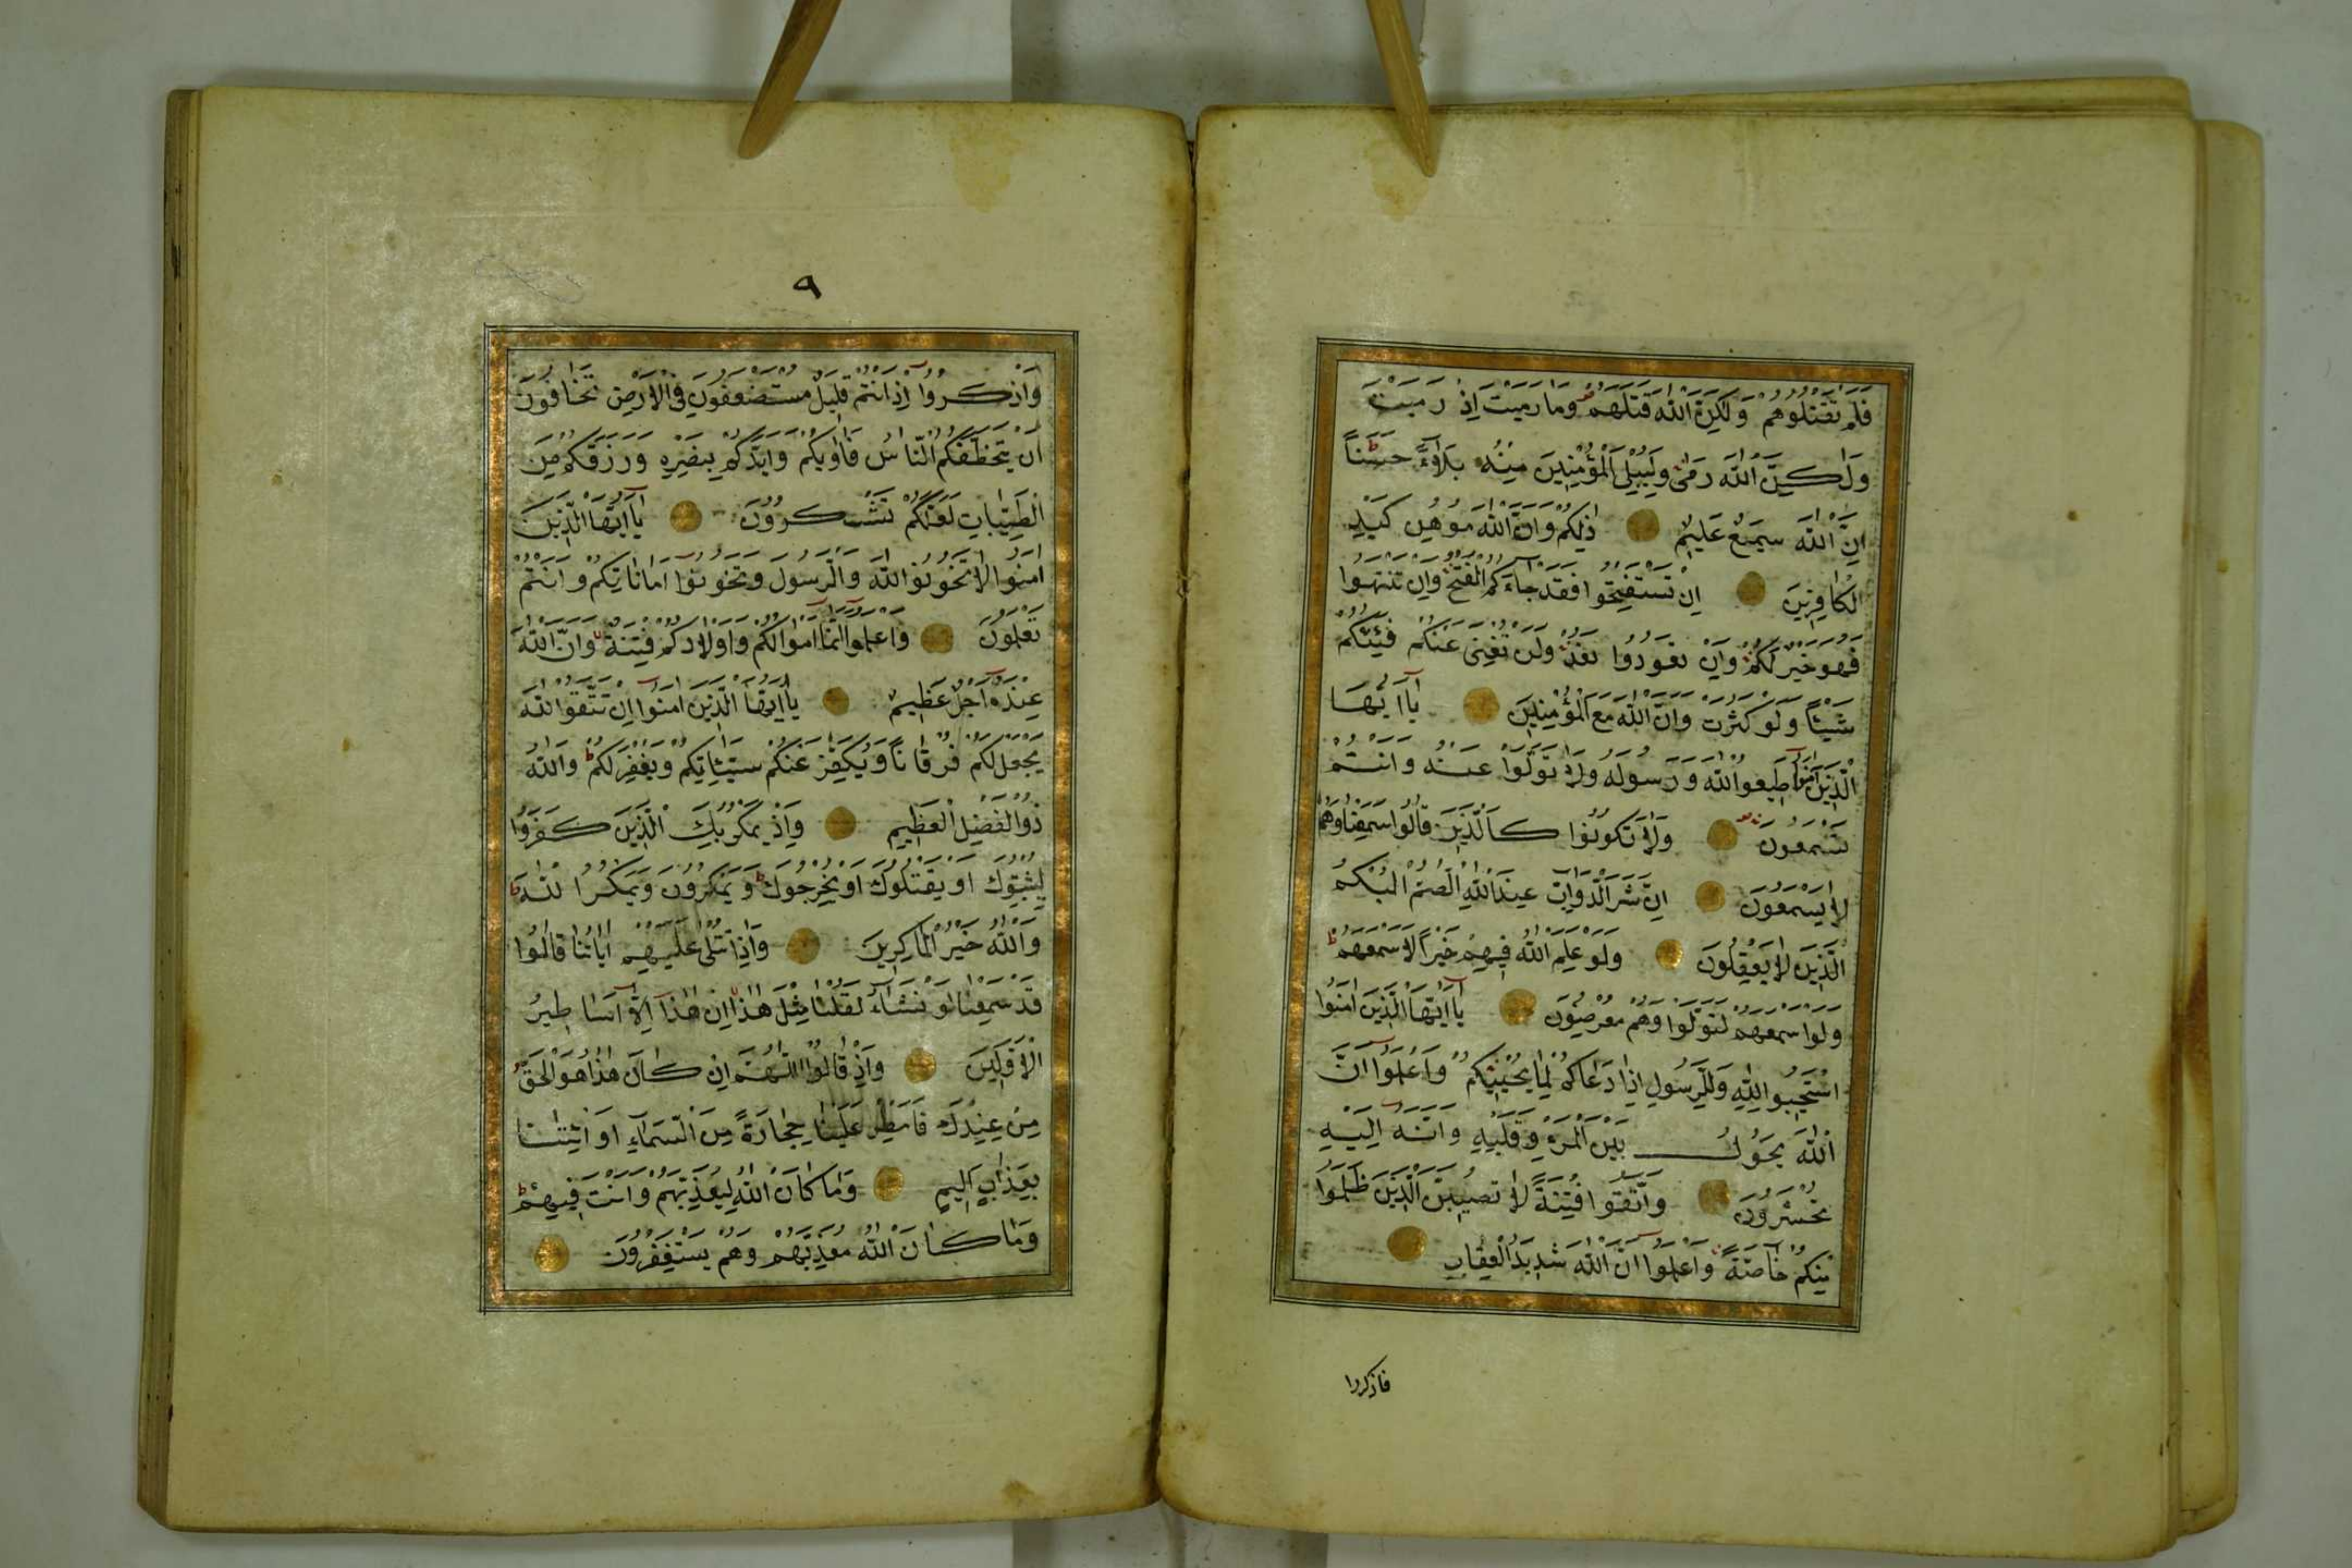 فَلَمْ تَقْتُلُوهُمْ وَلٰكِنَّ اللّٰهَ قَتَلَهُمْ وَمَا رَمَيْتَ اِذْ رَمَيْتَ
وَلٰكِنَّ اللّٰهَ رَمٰى وَلِيُبْلِيَ الْمُؤْمِنِينَ مِنْهُ بَلَاءً حَسَنًا
اِنَّ اللّٰهَ سَمِيعٌ عَلِيمٌ ذٰلِكُمْ وَاَنَّ اللّٰهَ مُوهِنُ كَيْدِ
الْكَافِرِينَ اِنْ تَسْتَفْتِحُوا فَقَدْ جَاءَكُمُ الْفَتْحُ وَاِنْ تَنْتَهُوا
فَهُوَ خَيْرٌ لَكُمْ وَاِنْ تَعُودُوا نَعُدْ وَلَنْ تُغْنِيَ عَنْكُمْ فِئَتُكُمْ
شَيْئًا وَلَوْ كَثُرَتْ وَاَنَّ اللّٰهَ مَعَ الْمُؤْمِنِينَ يَا اَيُّهَا
الَّذِينَ اٰمَنُوا اَطِيعُوا اللّٰهَ وَرَسُولَهُ وَلَا تَوَلَّوْا عَنْهُ وَاَنْتُمْ
تَسْمَعُونَ وَلَا تَكُونُوا كَالَّذِينَ قَالُوا سَمِعْنَا وَهُمْ
لَا يَسْمَعُونَ اِنَّ شَرَّ الدَّوَابِّ عِنْدَ اللّٰهِ الصُّمُّ الْبُكْمُ
الَّذِينَ لَا يَعْقِلُونَ وَلَوْ عَلِمَ اللّٰهُ فِيهِمْ خَيْرًا لَاَسْمَعَهُمْ
وَلَوْ اَسْمَعَهُمْ لَتَوَلَّوْا وَهُمْ مُعْرِضُونَ يَا اَيُّهَا الَّذِينَ اٰمَنُوا
اسْتَجِيبُوا لِلّٰهِ وَلِلرَّسُولِ اِذَا دَعَاكُمْ لِمَا يُحْيِيكُمْ وَاعْلَمُوا اَنَّ
اللّٰهَ يَحُولُ بَيْنَ الْمَرْءِ وَقَلْبِهِ وَاَنَّهُ اِلَيْهِ
تُحْشَرُونَ وَاتَّقُوا فِتْنَةً لَا تُصِيبَنَّ الَّذِينَ ظَلَمُوا
مِنْكُمْ خَاصَّةً وَاعْلَمُوا اَنَّ اللّٰهَ شَدِيدُ الْعِقَابِ
فاذكروا
٩
وَاذْكُرُوا اِذْ اَنْتُمْ قَلِيلٌ مُسْتَضْعَفُونَ فِي الْاَرْضِ تَخَافُونَ
اَنْ يَتَخَطَّفَكُمُ النَّاسُ فَاٰوٰيكُمْ وَاَيَّدَكُمْ بِنَصْرِهِ وَرَزَقَكُمْ مِنَ
الطَّيِّبَاتِ لَعَلَّكُمْ تَشْكُرُونَ يَا اَيُّهَا الَّذِينَ
اٰمَنُوا لَا تَخُونُوا اللّٰهَ وَالرَّسُولَ وَتَخُونُوا اَمَانَاتِكُمْ وَاَنْتُمْ
تَعْلَمُونَ وَاعْلَمُوا اَنَّمَا اَمْوَالُكُمْ وَاَوْلَادُكُمْ فِتْنَةٌ وَاَنَّ اللّٰهَ
عِنْدَهُ اَجْرٌ عَظِيمٌ يَا اَيُّهَا الَّذِينَ اٰمَنُوا اِنْ تَتَّقُوا اللّٰهَ
يَجْعَلْ لَكُمْ فُرْقَانًا وَيُكَفِّرْ عَنْكُمْ سَيِّئَاتِكُمْ وَيَغْفِرْ لَكُمْ وَاللّٰهُ
ذُو الْفَضْلِ الْعَظِيمِ وَاِذْ يَمْكُرُ بِكَ الَّذِينَ كَفَرُوا
لِيُثْبِتُوكَ اَوْ يَقْتُلُوكَ اَوْ يُخْرِجُوكَ وَيَمْكُرُونَ وَيَمْكُرُ اللّٰهُ
وَاللّٰهُ خَيْرُ الْمَاكِرِينَ وَاِذَا تُتْلٰى عَلَيْهِمْ اٰيَاتُنَا قَالُوا
قَدْ سَمِعْنَا لَوْ نَشَاءُ لَقُلْنَا مِثْلَ هٰذَا اِنْ هٰذَا اِلَّا اَسَاطِيرُ
الْاَوَّلِينَ وَاِذْ قَالُوا اللّٰهُمَّ اِنْ كَانَ هٰذَا هُوَ الْحَقَّ
مِنْ عِنْدِكَ فَاَمْطِرْ عَلَيْنَا حِجَارَةً مِنَ السَّمَاءِ اَوِ ائْتِنَا
بِعَذَابٍ اَلِيمٍ وَمَا كَانَ اللّٰهُ لِيُعَذِّبَهُمْ وَاَنْتَ فِيهِمْ
وَمَا كَانَ اللّٰهُ مُعَذِّبَهُمْ وَهُمْ يَسْتَغْفِرُونَ